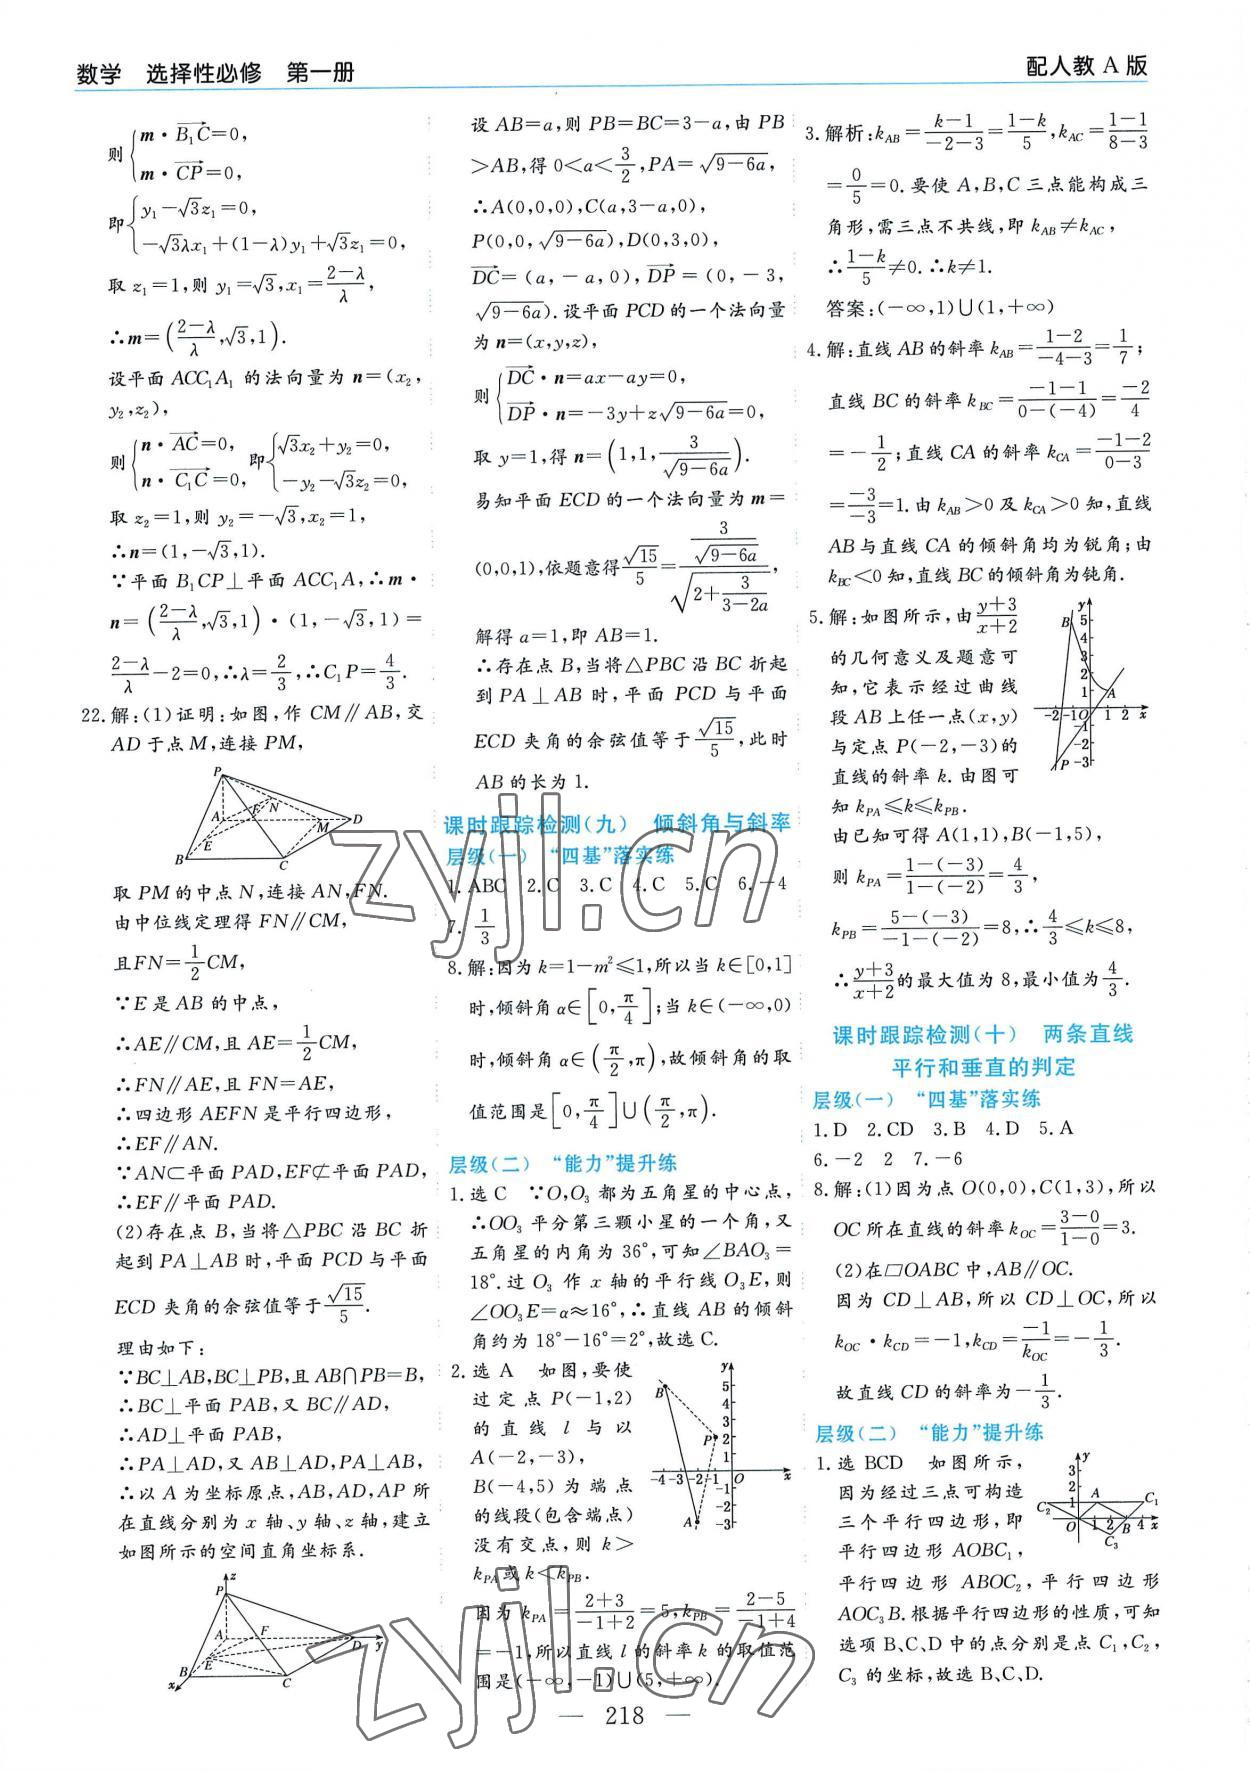 数学 选择性必修 第一册
配人教 A 版
则{m·B₁C=0,
m·CP=0,
即{y₁-√3z₁=0,
-√3λx₁+(1-λ)y₁+√3z₁=0,
取 z₁=1,则 y₁=√3,x₁=(2-λ)/λ,
∴m=((2-λ)/λ,√3,1).
设平面 ACC₁A₁ 的法向量为 n=(x₂,
y₂,z₂),
则{n·AC=0, 即{√3x₂+y₂=0,
n·C₁C=0, -y₂-√3z₂=0,
取 z₂=1,则 y₂=-√3,x₂=1,
∴n=(1,-√3,1).
∵平面 B₁CP⊥平面 ACC₁A,∴m·
n=((2-λ)/λ,√3,1)·(1,-√3,1)=
(2-λ)/λ-2=0,∴λ=2/3,∴C₁P=4/3.
22.解:(1)证明:如图,作 CM∥AB,交
AD 于点 M,连接 PM,
P
N
F
A
M
D
E
B
C
取 PM 的中点 N,连接 AN,FN.
由中位线定理得 FN∥CM,
且FN=1/2CM,
∵E 是 AB 的中点,
∴AE∥CM,且 AE=1/2CM,
∴FN∥AE,且 FN=AE,
∴四边形 AEFN 是平行四边形,
∴EF∥AN.
∵AN⊂平面 PAD,EF⊄平面 PAD,
∴EF∥平面 PAD.
(2)存在点 B,当将△PBC 沿 BC 折
起到 PA⊥AB 时,平面 PCD 与平面
ECD 夹角的余弦值等于√15/5.
理由如下:
∵BC⊥AB,BC⊥PB,且 AB∩PB=B,
∴BC⊥平面 PAB,又 BC∥AD,
∴AD⊥平面 PAB,
∴PA⊥AD,又 AB⊥AD,PA⊥AB,
∴以 A 为坐标原点,AB,AD,AP 所
在直线分别为 x 轴、y 轴、z 轴,建立
如图所示的空间直角坐标系.
z
P
A
F
D
y
E
B
C
x
设 AB=a,则 PB=BC=3-a,由 PB
>AB,得 0<a<3/2,PA=√(9-6a),
∴A(0,0,0),C(a,3-a,0),
P(0,0,√(9-6a)),D(0,3,0),
DC=(a,-a,0),DP=(0,-3,
√(9-6a)).设平面 PCD 的一个法向量
为 n=(x,y,z),
则{DC·n=ax-ay=0,
DP·n=-3y+z√(9-6a)=0,
取 y=1,得 n=(1,1,3/√(9-6a)).
易知平面 ECD 的一个法向量为 m=
(0,0,1),依题意得√15/5=(3/√(9-6a))/√(2+3/(3-2a)),
解得 a=1,即 AB=1.
∴存在点 B,当将△PBC 沿 BC 折起
到 PA⊥AB 时,平面 PCD 与平面
ECD 夹角的余弦值等于√15/5,此时
AB 的长为 1.
课时跟踪检测(九) 倾斜角与斜率
层级(一) “四基”落实练
1.ABC 2.C 3.C 4.C 5.C 6.-4
7.1/3
8.解:因为 k=1-m²≤1,所以当 k∈[0,1]
时,倾斜角 α∈[0,π/4];当 k∈(-∞,0)
时,倾斜角 α∈(π/2,π),故倾斜角的取
值范围是[0,π/4]∪(π/2,π).
层级(二) “能力”提升练
1.选 C ∵O,O₃ 都为五角星的中心点,
∴OO₃ 平分第三颗小星的一个角,又
五角星的内角为 36°,可知∠BAO₃=
18°.过 O₃ 作 x 轴的平行线 O₃E,则
∠OO₃E=α≈16°,∴直线 AB 的倾斜
角约为 18°-16°=2°,故选 C.
2.选 A 如图,要使
过定点 P(-1,2)
的直线 l 与以
A(-2,-3),
B(-4,5)为端点
的线段(包含端点)
没有交点,则 k>
kPA或 k<kPB.
y
B
5
4
3
P
2
1
-4-3-2-1 O x
-1
-2
A
-3
因为 kPA=(2+3)/(-1+2)=5,kPB=(2-5)/(-1+4)
=-1,所以直线 l 的斜率 k 的取值范
围是(-∞,-1)∪(5,+∞).
3.解析:kAB=(k-1)/(-2-3)=(1-k)/5,kAC=(1-1)/(8-3)
=0/5=0.要使 A,B,C 三点能构成三
角形,需三点不共线,即 kAB≠kAC,
∴(1-k)/5≠0.∴k≠1.
答案:(-∞,1)∪(1,+∞)
4.解:直线 AB 的斜率 kAB=(1-2)/(-4-3)=1/7;
直线 BC 的斜率 kBC=(-1-1)/(0-(-4))=-2/4
=-1/2;直线 CA 的斜率 kCA=(-1-2)/(0-3)
=-3/-3=1.由 kAB>0 及 kCA>0 知,直线
AB 与直线 CA 的倾斜角均为锐角;由
kBC<0 知,直线 BC 的倾斜角为钝角.
5.解:如图所示,由(y+3)/(x+2)
的几何意义及题意可
知,它表示经过曲线
段 AB 上任一点(x,y)
与定点 P(-2,-3)的
直线的斜率 k.由图可
知 kPA≤k≤kPB.
y
B
5
4
3
2
1
A
-2-1O 1 2 x
-1
-2
P
-3
由已知可得 A(1,1),B(-1,5),
则 kPA=(1-(-3))/(1-(-2))=4/3,
kPB=(5-(-3))/(-1-(-2))=8,∴4/3≤k≤8,
∴(y+3)/(x+2)的最大值为 8,最小值为4/3.
课时跟踪检测(十) 两条直线
平行和垂直的判定
层级(一) “四基”落实练
1.D 2.CD 3.B 4.D 5.A
6.-2 2 7.-6
8.解:(1)因为点 O(0,0),C(1,3),所以
OC 所在直线的斜率 kOC=(3-0)/(1-0)=3.
(2)在□OABC 中,AB∥OC.
因为 CD⊥AB,所以 CD⊥OC,所以
kOC·kCD=-1,kCD=-1/kOC=-1/3.
故直线 CD 的斜率为-1/3.
层级(二) “能力”提升练
1.选 BCD 如图所示,
因为经过三点可构造
三个平行四边形,即
平行四边形 AOBC₁,
平行四边形 ABOC₂,平行四边形
AOC₃B.根据平行四边形的性质,可知
选项 B、C、D 中的点分别是点 C₁,C₂,
C₃ 的坐标,故选 B、C、D.
y
3
2
1
A
C₁
C₂
O 1 2 B 4 x
C₃
— 218 —
zyjl.cn
zyjl.cn